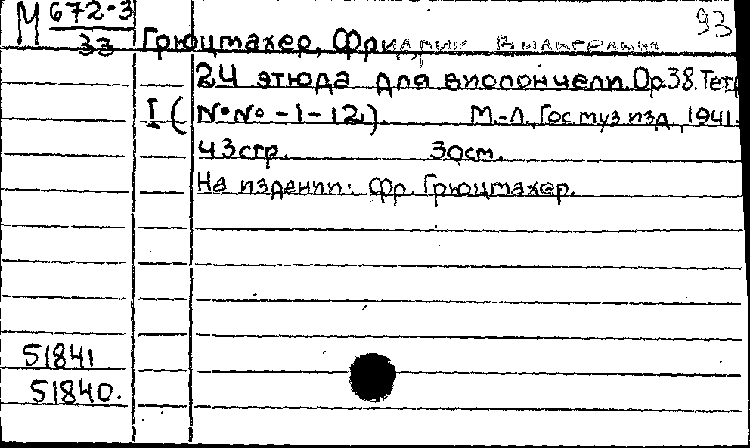 М 672-3 93
33 Грюцмахер, Фридрих Вильгельм
24 этюда для виолончели. Op.38. Тетр
I (№№ -1-12). М.-Л., Гос. муз. изд., 1941.
43 стр. 30 см.
На издании: Фр. Грюцмахер.
51841
51840.